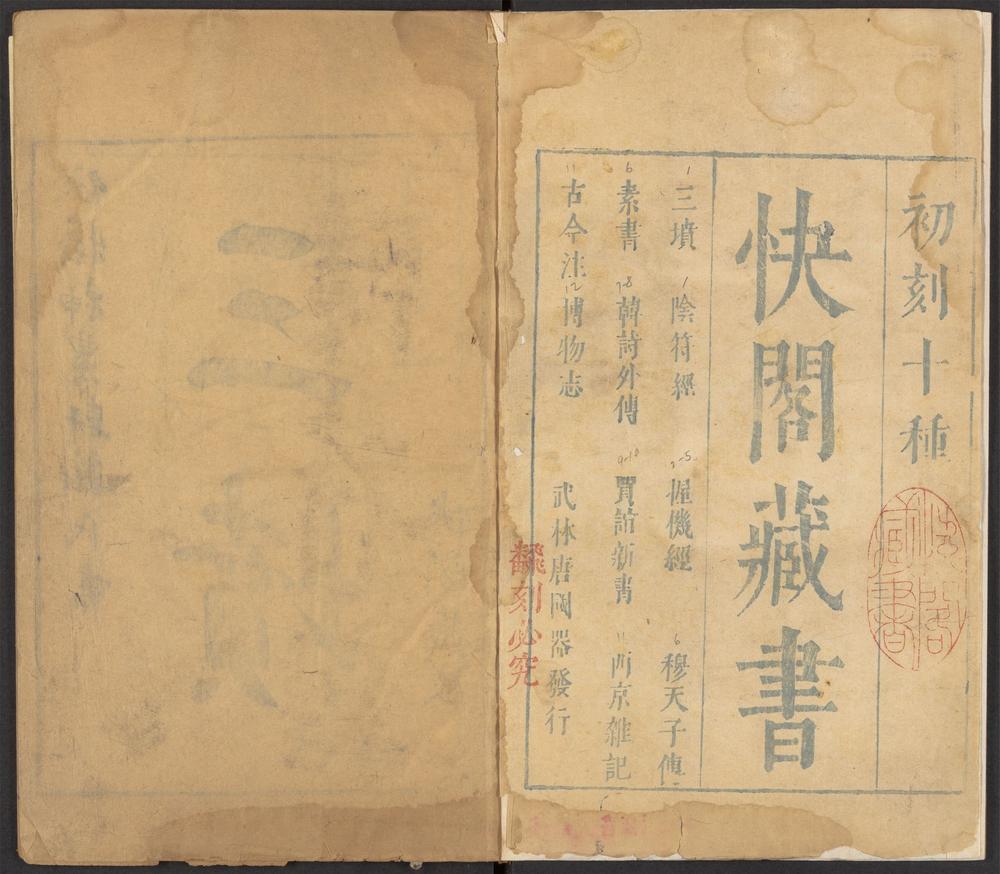 初刻十種
快閣藏書
快閣藏書
三墳 陰符經 握機經 穆天子傳
素書 韓詩外傳 賈誼新書 西京雜記
古今注 博物志 武林唐國器發行
翻刻必究